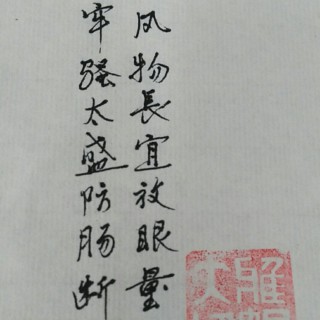 牢骚太盛防肠断
风物長宜放眼量